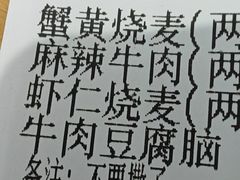 蟹黄烧麦(两
麻辣牛肉(两
虾仁烧麦(两
牛肉豆腐脑
备注：不要撒了